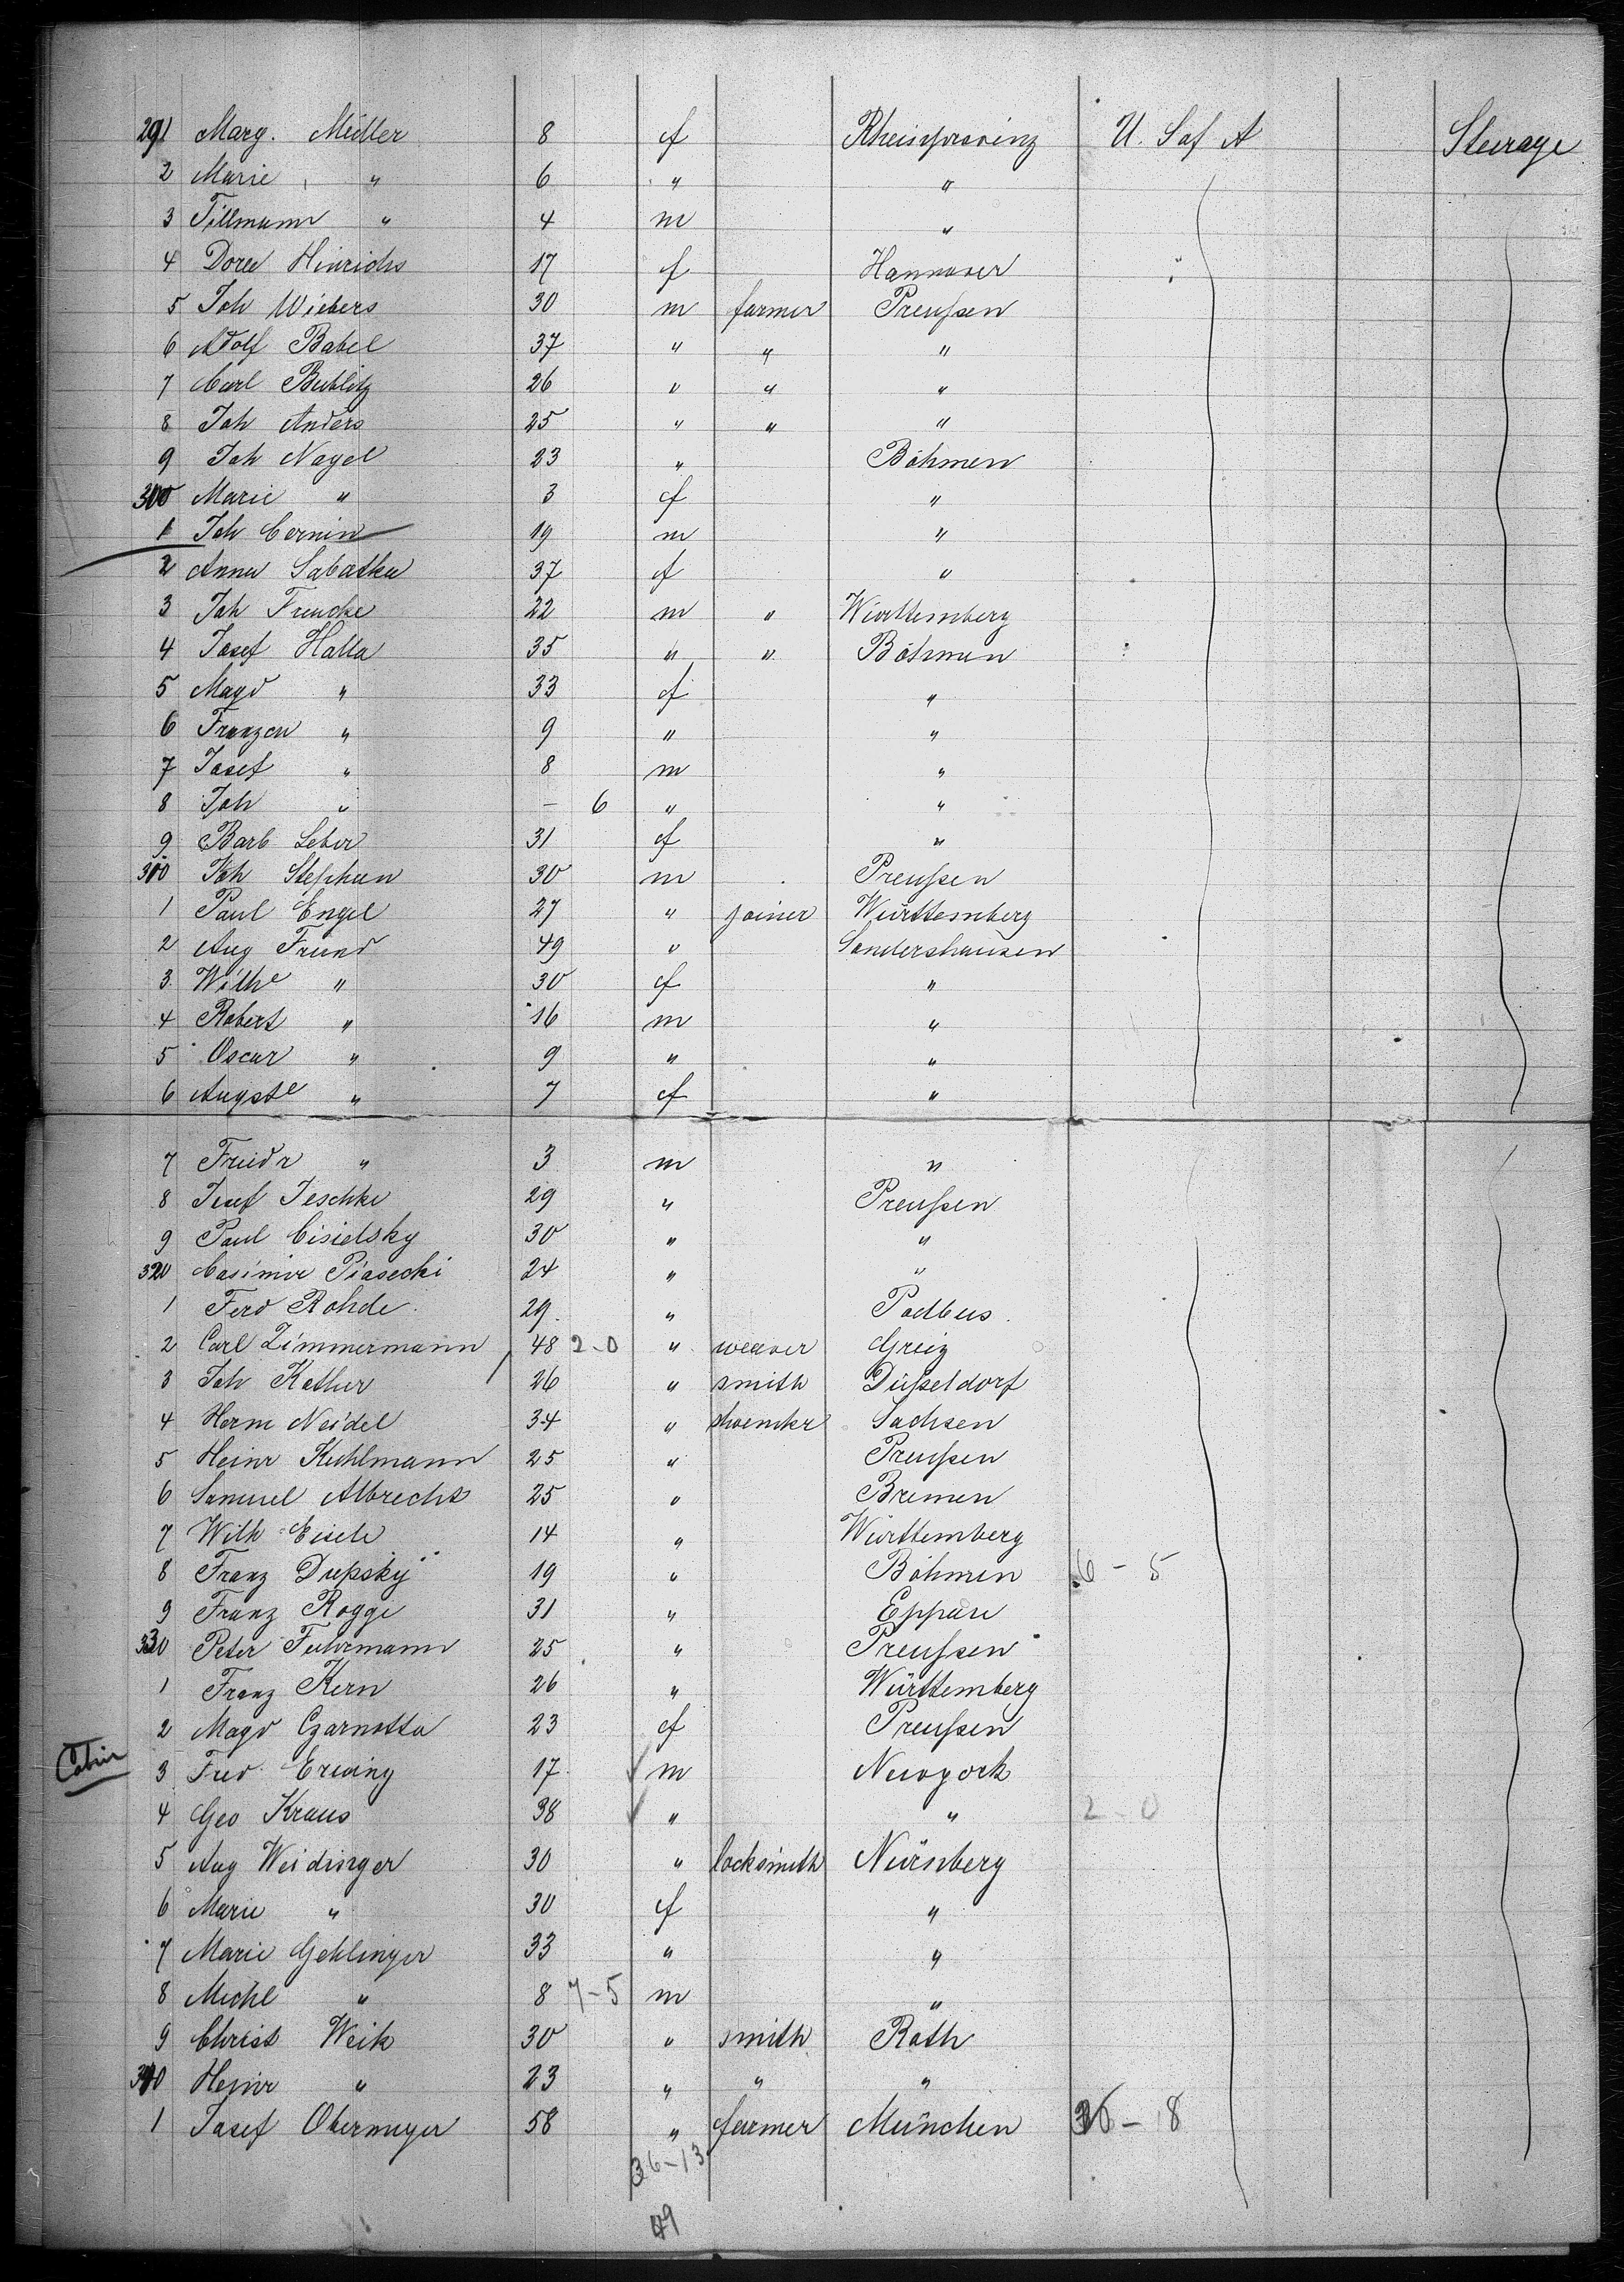 291 Marg. Müller 8 f Rheinprovinz U. S of A Steerage
2 Marie " 6 " "
3 Tillmann " 4 m "
4 Doree Hinrichs 17 f Hannover
5 Joh Wiebers 30 m farmer Preußen
6 Adolf Babel 37 " " "
7 Carl Bublitz 26 " " "
8 Joh Anders 25 " " "
9 Joh Nagel 23 " Böhmen
300 Marie " 3 f "
1 Joh Cernin 19 m "
2 Anna Sabatka 37 f "
3 Joh Francke 22 m " Württemberg
4 Josef Halla 35 " " Böhmen
5 Magd " 33 f "
6 Franzen " 9 " "
7 Josef " 8 m "
8 Joh " - 6 " "
9 Barb Leber 31 f "
310 Joh Stephan 30 m Preußen
1 Paul Engel 27 " joiner Württemberg
2 Aug Freund 49 " Sondershausen
3 Wilhe " 30 f "
4 Robert " 16 m "
5 Oscar " 9 " "
6 Augste " 7 f "
7 Friedr " 3 m "
8 Josef Jeschke 29 " Preußen
9 Paul Cisielsky 30 " "
320 Casimir Piasecki 24 " "
1 Ferd Rohde 29 " Padbus
2 Carl Zimmermann 48 2-0 " weaver Greiz
3 Joh Kathur 26 " smith Düßeldorf
4 Herm Neidel 34 " shoemkr Sachsen
5 Heinr Kuhlmann 25 " Preußen
6 Samuel Albrecht 25 " Bremen
7 Wilh Eisele 14 " Württemberg
8 Franz Dupsky 19 " Böhmen 6 - 5
9 Franz Rogge 31 " Eppau
330 Peter Fuhrmann 25 " Preußen
1 Franz Kern 26 " Württemberg
2 Magd Czarnotta 23 f Preußen
Cabin 3 Fred Erwing 17 m Newyork
4 Geo Kraus 38 " " 2-0
5 Aug Weidinger 30 " locksmith Nürnberg
6 Marie " 30 f "
7 Marie Gehlinger 33 " "
8 Michl " 8 7-5 m "
9 Christ Weik 30 " smith Roth
340 Heinr " 23 " " "
1 Josef Obermeyer 58 " farmer München 36-18
36-13
49